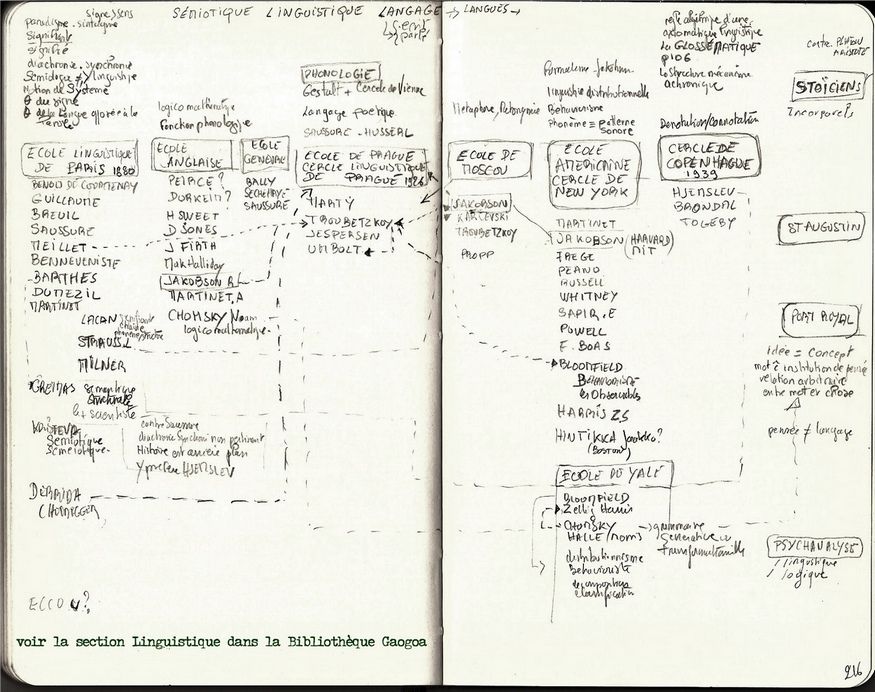 SÉMIOTIQUE LINGUISTIQUE LANGAGE → LANGUES →
signe, sens
paradigme. sintagme
signifiant
signifié
diachronie. synchronie
Semiologie ≠ linguistique
notion de Système
θ du signe
θ de la langue
ECOLE LINGUISTIQUE
DE PARIS 1880
BENOIN DE COURTENAY
GUILLAUME
BREUIL
SAUSSURE
MEILLET
BENNEVENISTE
BARTHES
DUMEZIL
MARTINET
LACAN
STRAUSS.L
MILNER
GREIMAS semantique
structurale
le + scientiste
KRISTEVA
Sémiotique
Sémeiotique.
contre Saussure
diachronie Synchronie non pertinent
Histoire est arrière plan
Y préfère HJEMSLEV
DERRIDA
ECCO U?
logico mathematique
Fonction phonologique
ECOLE
ANGLAISE
PEIRCE?
DURKEIM?
H SWEET
D JONES
J FIRTH
Mak Halliday
JAKOBSON R
MARTINET.A
CHOMSKY Noam
logico mathematique.
ECOLE
GENEVE
BALLY
SECHEHAYE
SAUSSURE
PHONOLOGIE
Gestalt + Cercle de Vienne
Langage poetique
SAUSSURE - HUSSERL
ECOLE DE PRAGUE
CERCLE LINGUISTIQUE
DE PRAGUE 1926
MARTY
TROUBETZKOY
JESPERSEN
UMBOLT
Metaphore, Metonymie
ECOLE DE
MOSCOU
JAKOBSON
KARCEVSKI
TROUBETZKOY
PROPP
Formalisme Jakobson
linguistique distributionnelle
Behaviorisme
phonème = patterne
sonore
ECOLE
AMERICAINE
CERCLE DE
NEW YORK
MARTINET
JAKOBSON (HARVARD
MIT
FREGE
PEANO
RUSSELL
WHITNEY
SAPIR.E
POWELL
F. BOAS
BLOOMFIELD
Behaviorisme
les observables
HARRIS ZS
HINTIKKA Jaakko?
(BOSTON)
ECOLE DU YALE
BLOOMFIELD
Zellig Harris
CHOMSKY → grammaire
HALLE/Morris generative et
transformationnelle
distributionnisme
behavioriste
classification
axiomatique linguistique
la GLOSSÉMATIQUE
p106
la structure mécanisme
achronique
Dénotation/connotation
CERCLE DE
COPENHAGUE
1939
HJEMSLEV
BRONDAL
TOGEBY
contre PLATON
ARISTOTE
STOÏCIENS
incorporels
ST AUGUSTIN
PORT ROYAL
idée = concept
mot = institution de pensée
relation arbitraire
entre mot et chose
pensée ≠ langage
PSYCHANALYSE
/ linguistique
/ logique
voir la section Linguistique dans la Bibliothèque Gaogoa
216